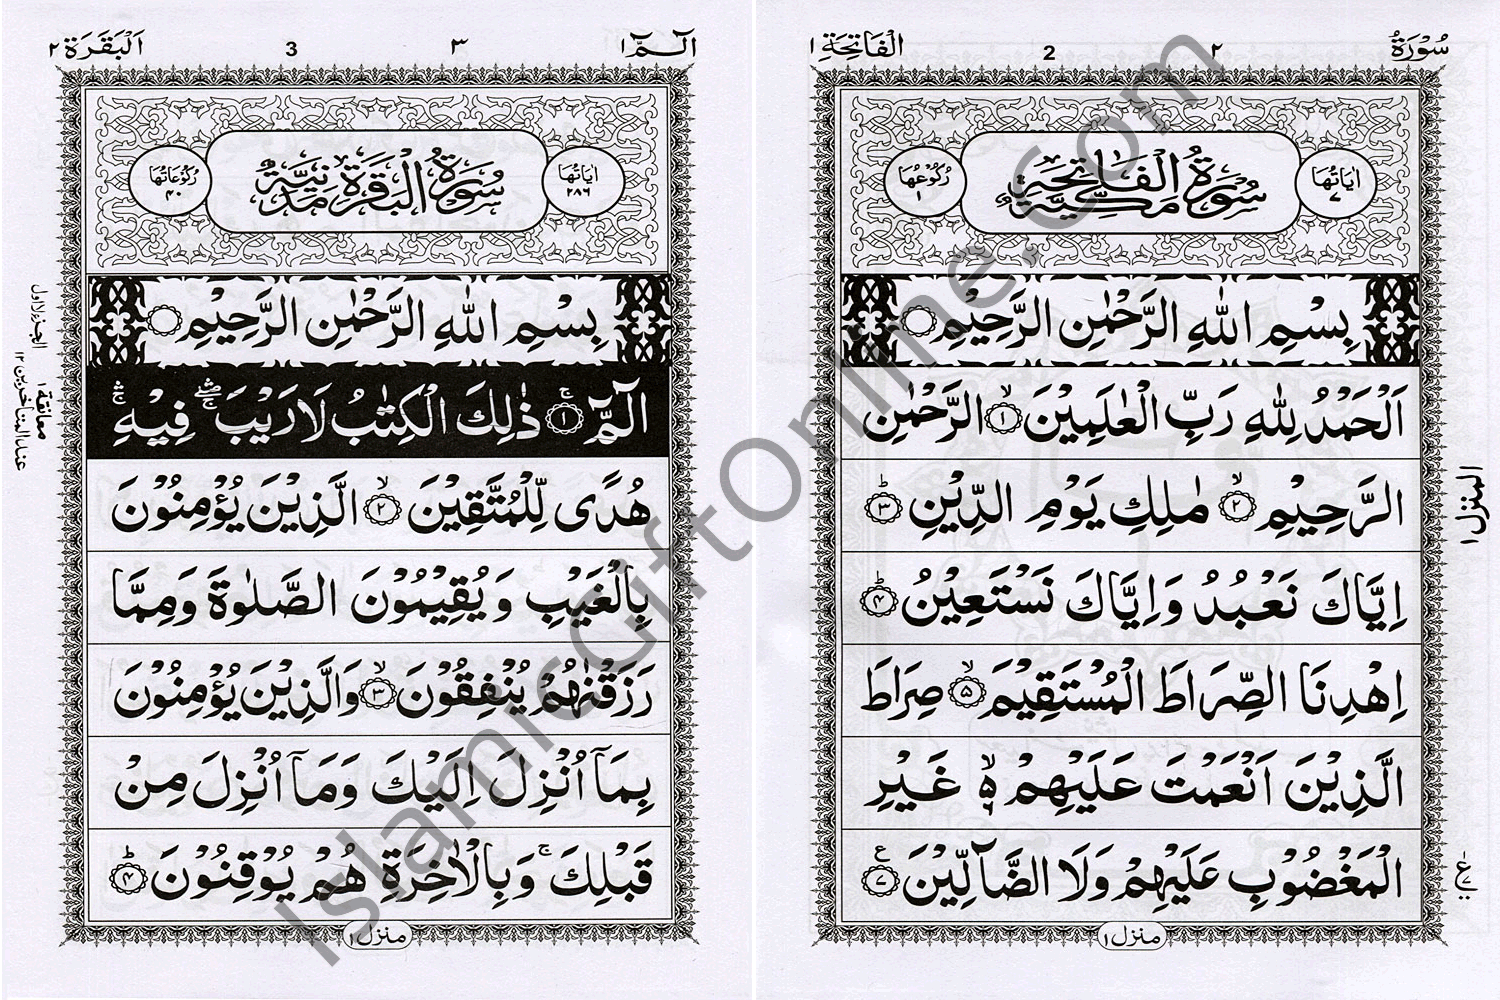 سُوْرَةُ ٢ 2 الْفَاتِحَة ١
اٰيَاتُهَا ٧
سُوْرَةُ الْفَاتِحَةِ مَكِّيَّةٌ
رُكُوْعُهَا ١
بِسْمِ اللهِ الرَّحْمٰنِ الرَّحِيْمِ
اَلْحَمْدُ لِلّٰهِ رَبِّ الْعٰلَمِيْنَ ۙ‏﴿١﴾ الرَّحْمٰنِ
الرَّحِيْمِ ۙ‏﴿٢﴾ مٰلِكِ يَوْمِ الدِّيْنِ ؕ‏﴿٣﴾
اِيَّاكَ نَعْبُدُ وَاِيَّاكَ نَسْتَعِيْنُ ؕ‏﴿٤﴾
اِهْدِنَا الصِّرَاطَ الْمُسْتَقِيْمَ ۙ‏﴿٥﴾ صِرَاطَ
الَّذِيْنَ اَنْعَمْتَ عَلَيْهِمْ ۙ۬ ۶ غَيْرِ
الْمَغْضُوْبِ عَلَيْهِمْ وَلَا الضَّآلِّيْنَ ﴿٧﴾ ع
المنزل ١
منزل ١
الٓـمّٓ ١ ٣ 3 اَلْبَقَرَة ٢
اٰيَاتُهَا ٢٨٦
سُوْرَةُ الْبَقَرَةِ مَدَنِيَّةٌ
رُكُوْعَاتُهَا ٤٠
بِسْمِ اللهِ الرَّحْمٰنِ الرَّحِيْمِ
الٓمّٓ ۚ‏﴿١﴾ ذٰلِكَ الْكِتٰبُ لَا رَيْبَ ۛۚ فِيْهِ ۛۚ
هُدًى لِّلْمُتَّقِيْنَ ۙ‏﴿٢﴾ الَّذِيْنَ يُؤْمِنُوْنَ
بِالْغَيْبِ وَيُقِيْمُوْنَ الصَّلٰوةَ وَمِمَّا
رَزَقْنٰهُمْ يُنْفِقُوْنَ ۙ‏﴿٣﴾ وَالَّذِيْنَ يُؤْمِنُوْنَ
بِمَآ اُنْزِلَ اِلَيْكَ وَمَآ اُنْزِلَ مِنْ
قَبْلِكَ ۚ وَبِالْاٰخِرَةِ هُمْ يُوْقِنُوْنَ ؕ‏﴿٤﴾
الجزء الاول
معانقة ١
عند المتاخرين ١٢
منزل ١
IslamicGiftOnline.com